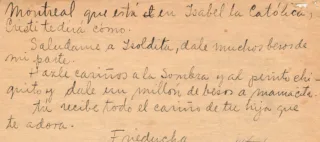 Montreal que está en Isabel la Católica,
Cristi te dirá como.
Saludame a Isoldita, dale muchos besos de
mi parte.
Hazle cariños a la Sombra y al perrito chi-
quito y dale un millon de besos a mamacita.
Tu recibe todo el cariño de tu hija que
te adora.
Frieducha